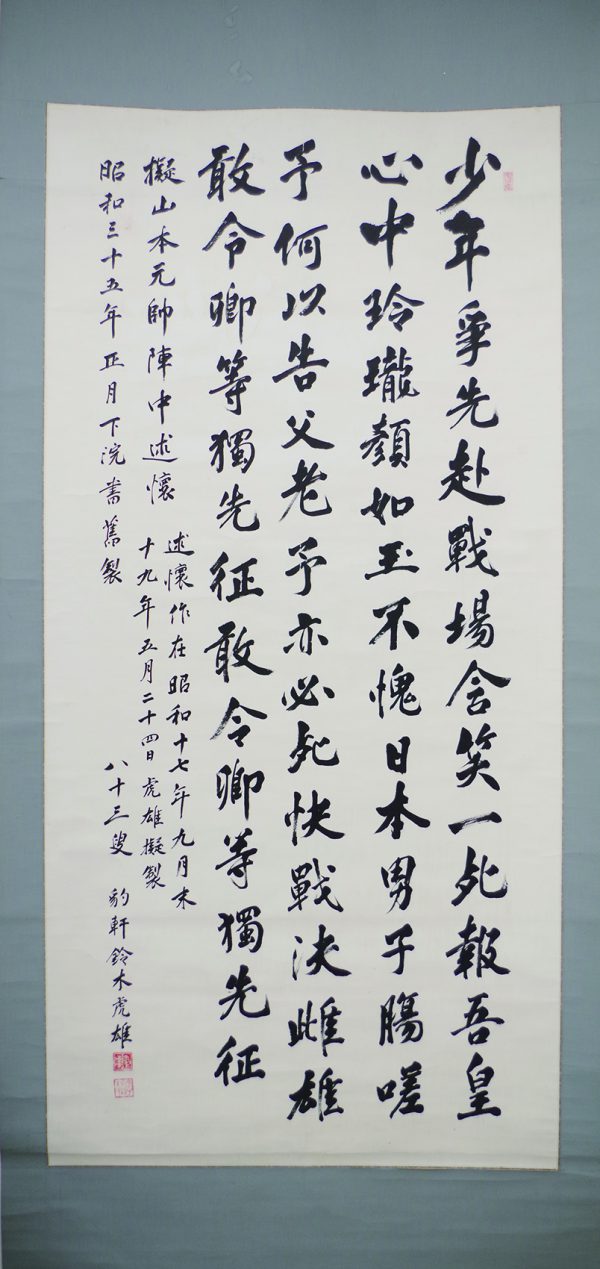 少年爭先赴戰場含笑一死報吾皇
心中玲瓏顏如玉不愧日本男子腸嗟
予何以告父老予亦必死快戰決雌雄
敢令卿等獨先征敢令卿等獨先征
擬山本元帥陣中述懷
述懷作在昭和十七年九月末
十九年五月二十四日虎雄擬製
昭和三十五年正月下浣書舊製
八十三叟 豹軒鈴木虎雄